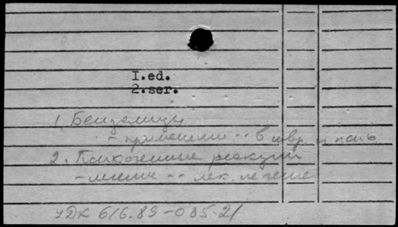 I.ed.
2.ser.
1. Бензамиды
- применение -- в невр. и псих.
2. Психогенные реакции
- лечение -- лек. лечение
УДК 616.89-085.21